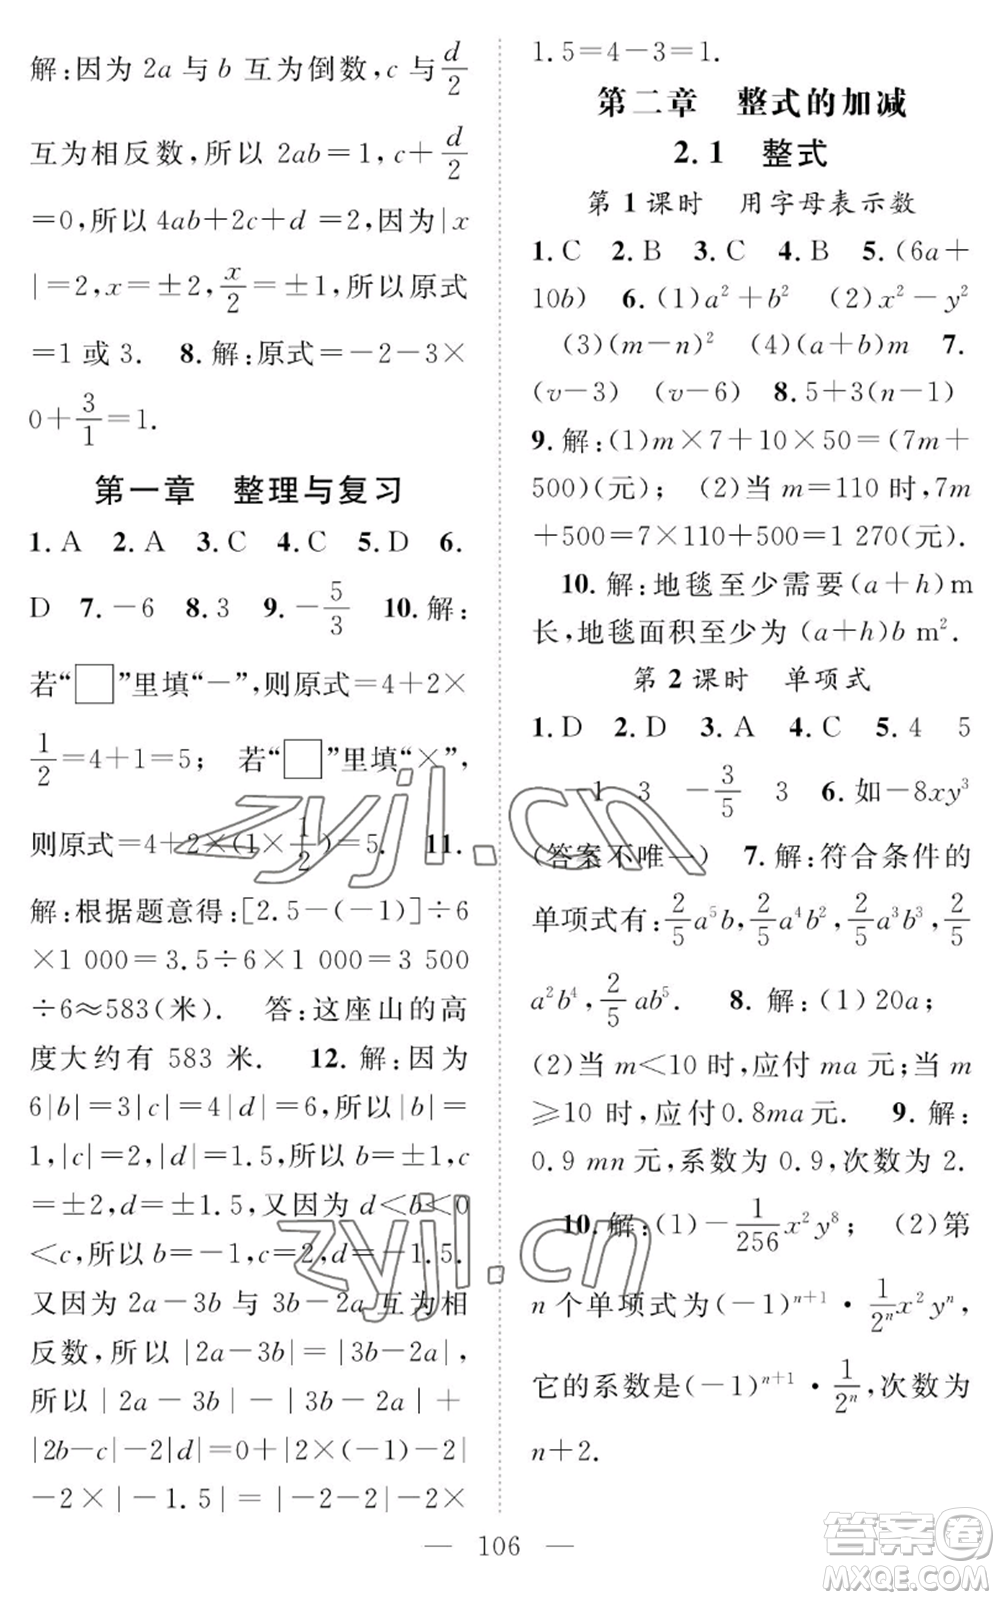 解:因为 2a 与 b 互为倒数,c 与 d/2
互为相反数,所以 2ab=1,c+d/2
=0,所以 4ab+2c+d=2,因为|x
|=2,x=±2,x/2=±1,所以原式
=1 或 3. 8.解:原式=-2-3×
0+3/1=1.
第一章 整理与复习
1.A 2.A 3.C 4.C 5.D 6.
D 7.-6 8.3 9.-5/3 10.解:
若“□”里填“-”,则原式=4+2×
1/2=4+1=5; 若“□”里填“×”,
则原式=4+2×(1×1/2)=5. 11.
解:根据题意得:[2.5-(-1)]÷6
×1 000=3.5÷6×1 000=3 500
÷6≈583(米). 答:这座山的高
度大约有 583 米. 12.解:因为
6|b|=3|c|=4|d|=6,所以|b|=
1,|c|=2,|d|=1.5,所以 b=±1,c
=±2,d=±1.5,又因为 d<b<0
<c,所以 b=-1,c=2,d=-1.5.
又因为 2a-3b 与 3b-2a 互为相
反数,所以 |2a-3b|=|3b-2a|,
所以 |2a-3b|-|3b-2a|+
|2b-c|-2|d|=0+|2×(-1)-2|
-2×|-1.5|=|-2-2|-2×
1.5=4-3=1.
第二章 整式的加减
2.1 整式
第 1 课时 用字母表示数
1.C 2.B 3.C 4.B 5.(6a+
10b) 6.(1)a²+b² (2)x²-y²
(3)(m-n)² (4)(a+b)m 7.
(v-3) (v-6) 8.5+3(n-1)
9.解:(1)m×7+10×50=(7m+
500)(元); (2)当 m=110 时,7m
+500=7×110+500=1 270(元).
10.解:地毯至少需要(a+h)m
长,地毯面积至少为 (a+h)b m².
第 2 课时 单项式
1.D 2.D 3.A 4.C 5.4 5
1 3 -3/5 3 6.如-8xy³
(答案不唯一) 7.解:符合条件的
单项式有:2/5a⁵b,2/5a⁴b²,2/5a³b³,2/5
a²b⁴,2/5ab⁵. 8.解:(1)20a;
(2)当 m<10 时,应付 ma 元;当 m
≥10 时,应付0.8ma元. 9.解:
0.9 mn元,系数为 0.9,次数为 2.
10.解:(1)-1/256x²y⁸; (2)第
n 个单项式为(-1)ⁿ⁺¹·1/2ⁿx²yⁿ,
它的系数是(-1)ⁿ⁺¹·1/2ⁿ,次数为
n+2.
106
zyjl.cn
zyjl.cn
答案圈
MXQE.COM